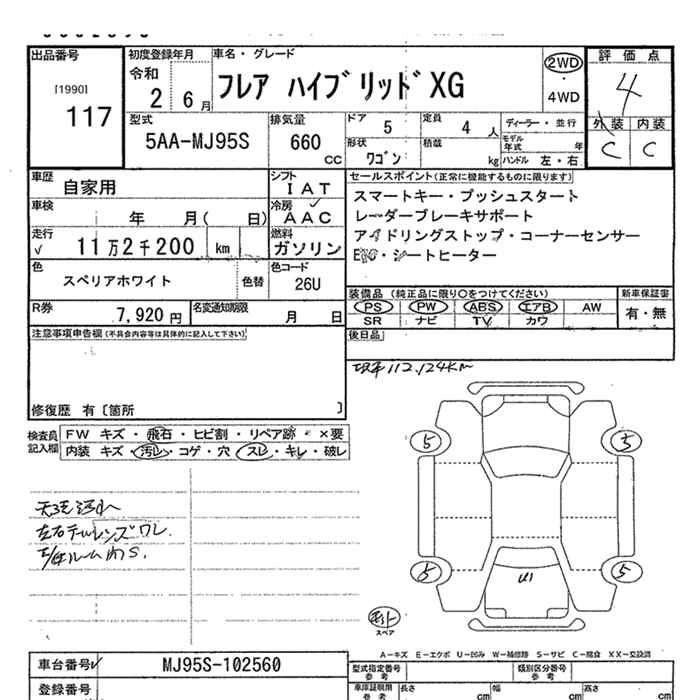 出品番号
[1990]
117
初度登録年月
令和
2 6月
車名・グレード
フレア ハイブリッド XG
2WD
4WD
評価点
4
外装 内装
C C
型式
5AA-MJ95S
排気量
660
CC
ドア 5
定員 4 人
ディーラー・並行
形状 ワゴン
積載 kg
モデル年式 年
ハンドル 左・右
車歴 自家用
シフト
IAT
車検 年 月( 日)
冷房
AAC
走行 11万2千200 km
燃料
ガソリン
色 スペリアホワイト
色替
色コード
26U
R券 7,920円
名変通知期限 月 日
セールスポイント(正常に機能するものに限ります)
スマートキー・プッシュスタート
レーダーブレーキサポート
アイドリングストップ・コーナーセンサー
シートヒーター
装備品 (純正品に限り○をつけてください)
PS PW ABS エアB AW
SR ナビ TV カワ
新車保証書
有・無
後日品
注意事項申告欄(不具合内容等は具体的に記入して下さい)
修復歴 有〔箇所 〕
112,124KM
検査員記入欄
FW キズ・飛石・ヒビ割・リペア跡・×要
内装 キズ・汚レ・コゲ・穴・スレ・キレ・破レ
左右テールレンズワレ
5 5
5 5
スペア
A-キズ E-エクボ U-凹み W-補修跡 S-サビ C-腐食 XX-交換済
車台番号 MJ95S-102560
登録番号
型式指定番号 参考
類別区分番号 参考
車庫証明用 参考
長さ cm 幅 cm 高さ cm